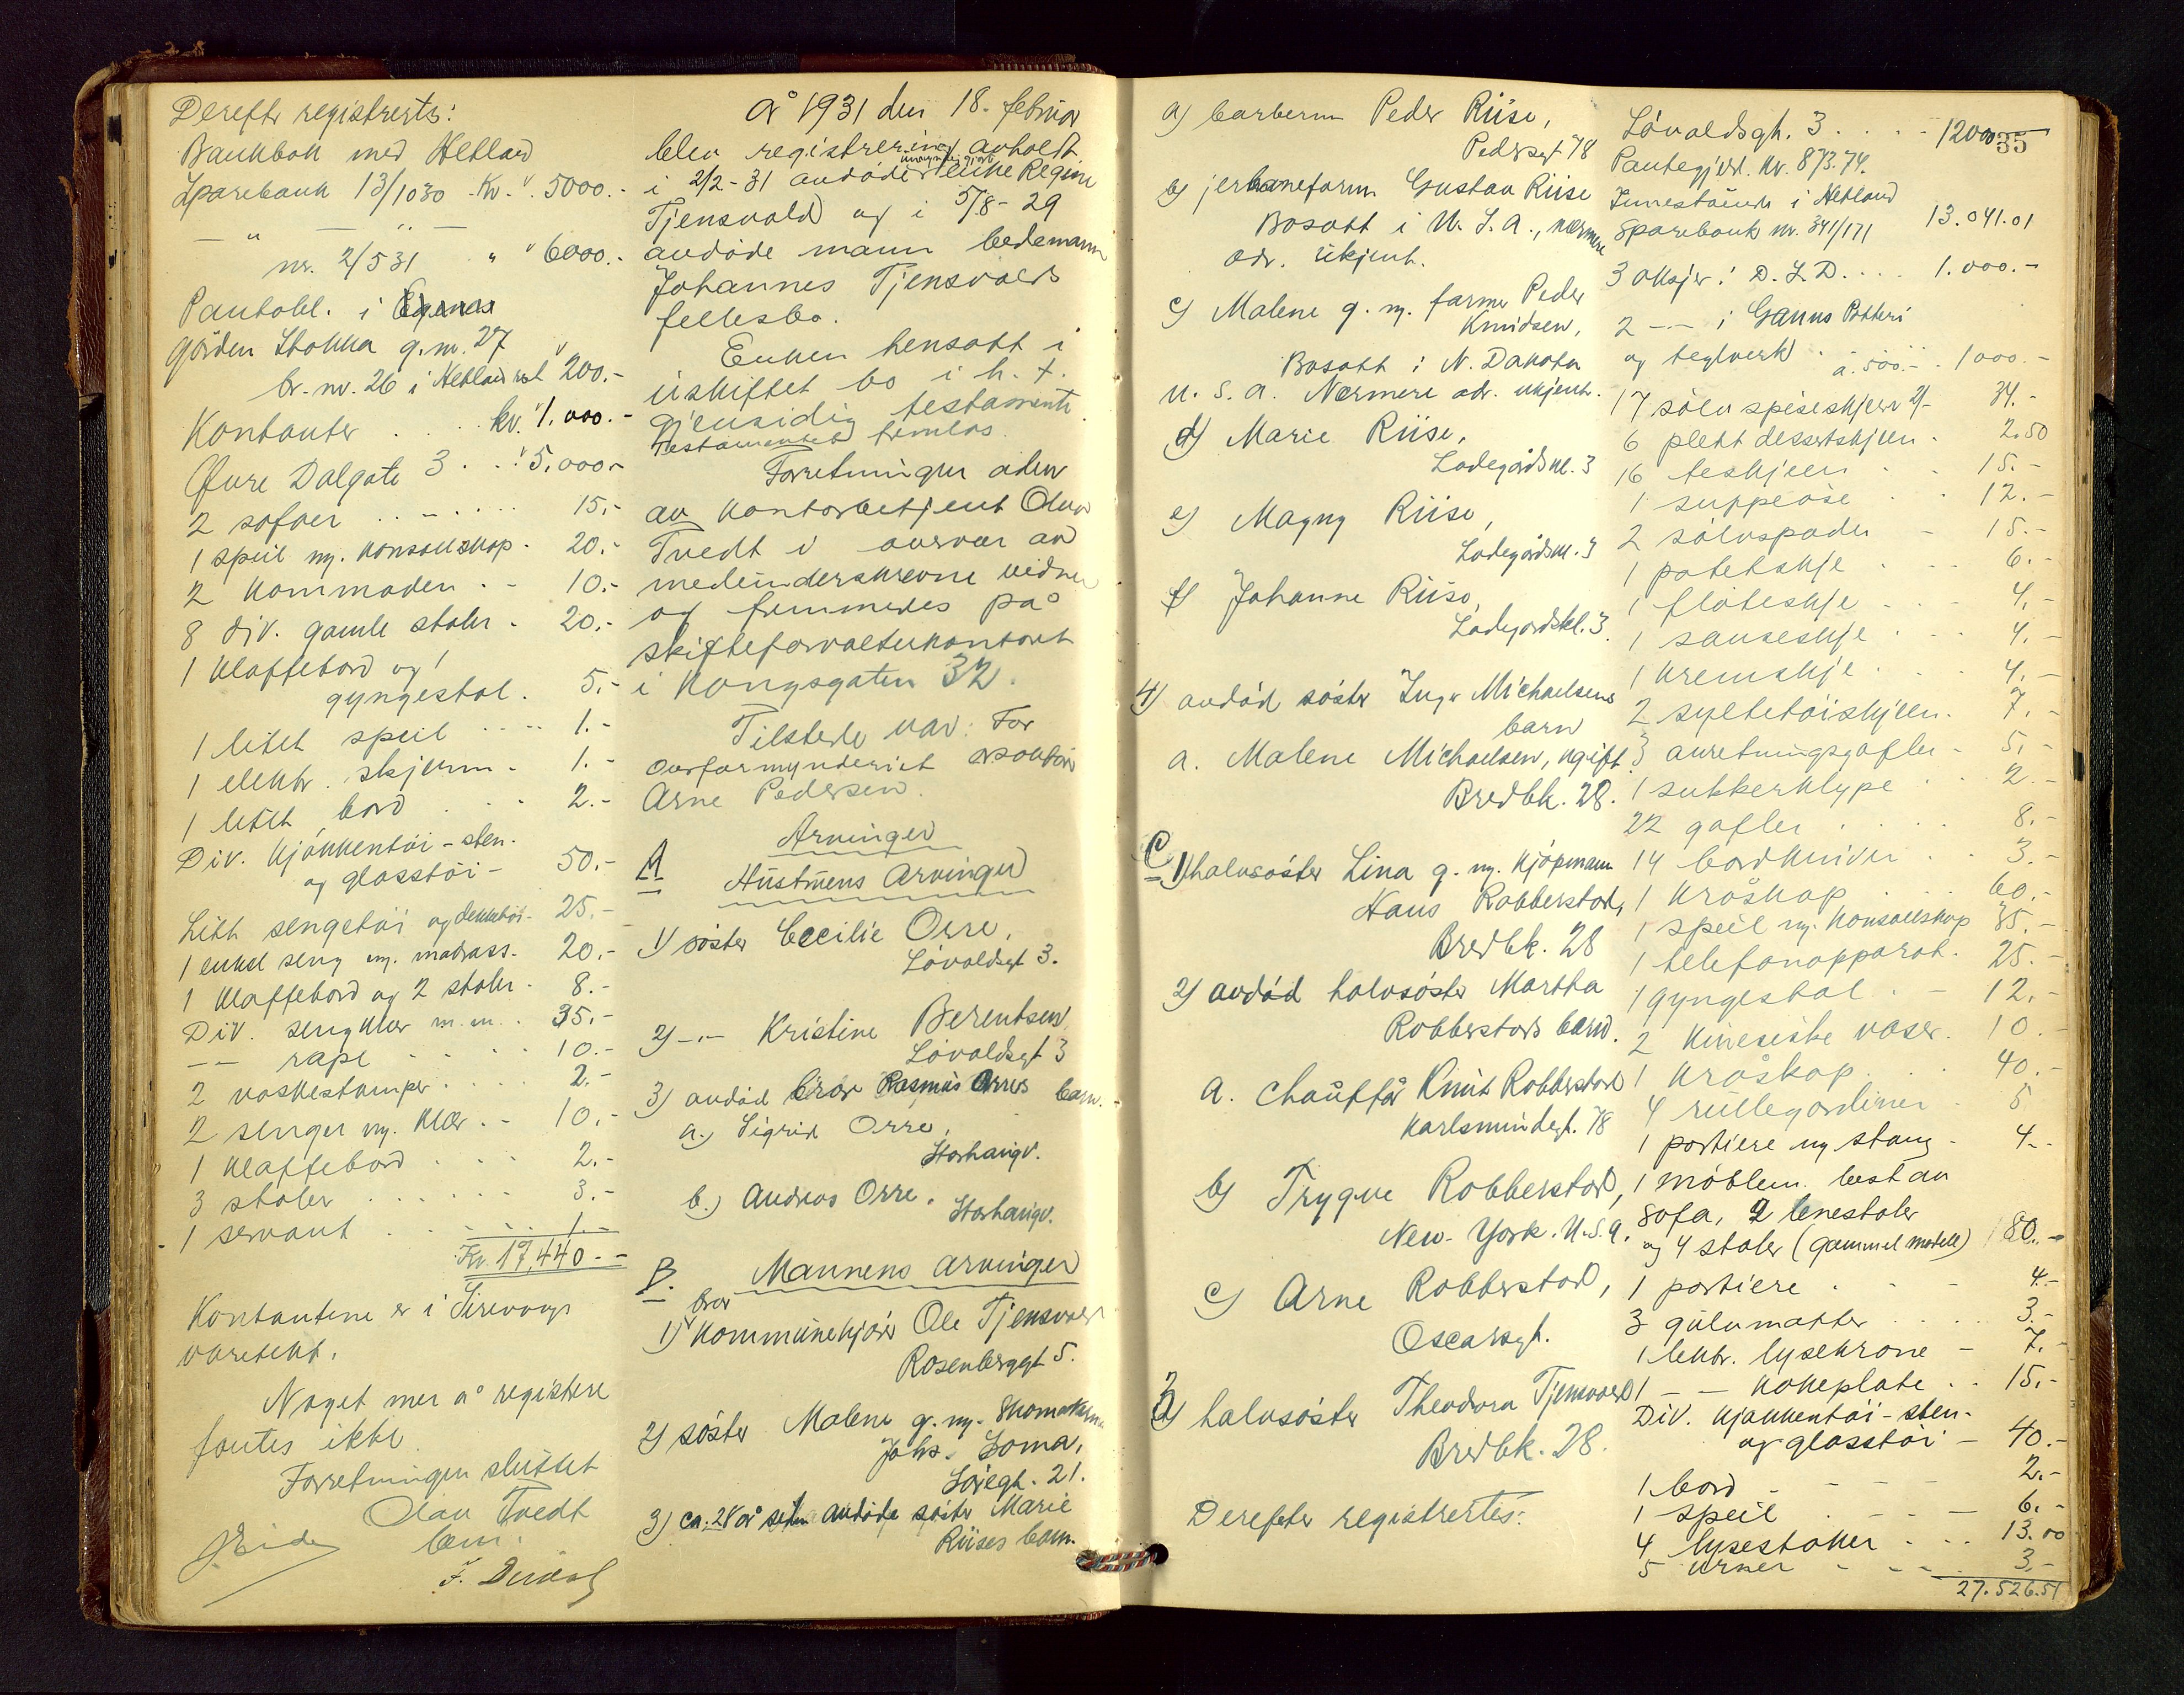 Derefter registrertes:
Bankbok med Hetland
Sparebank 13/1030 Kr. 5000.-
— " — " —
nr. 2/531 " " 6000.-
Pantobl. i
gården Stokka g.nr. 27
br. nr. 26 i Hetland " 200.-
Kontanter . . . kr. 1.000.-
Øvre Dalgate 3 . . " 5.000.-
2 sofaer . . - . . . . 15.-
1 speil m. konsollskap - 20.-
2 kommoder . - 10.-
8 div. gamle stoler - 20.-
1 klaffebord og 1
gyngestol . 5.-
1 litet speil . . . . 1.-
1 elektr. skjerm - 1.-
1 litet bord . . . 2.-
Div. kjøkkentøi - sten-
og glasstøi - 50.-
Litt sengetøi og dekketøi - 25.-
1 enkel seng m. madrass - 20.-
1 klaffebord og 2 stoler - 8.-
Div. sengklær m.m. . 35.-
— — . . . . 10.-
2 vaskestamper . . . . 2.-
2 senger m. klær . - 10.-
1 klaffebord . . . . 2.-
3 stoler . . . . . . 3.-
1 servant . . . . . 1.-
Kr. 17,440.-
Kontantene er i Sirevaags
varetekt.
Noget mer å registere
fantes ikke.
Forretningen sluttet
Olav Tvedt
bem.
År 1931 den 18. februar
blev registrering avholdt
i 2/2-31 avdøde enke Regine
Tjensvold og i 5/8-29
avdøde mann bedemann
Johannes Tjensvolds
fellesbo.
Enken hensatt i
uskiftet bo i h. t.
gjensidig testamente
Testamentet fremlas.
Forretningen
av kontorbetjent Olav
Tvedt i overvær av
medunderskrevne vidner
og fremmedes på
skifteforvalterkontoret
i Kongsgaten 32.
Tilstede var: For
overformynderiet
Arne Pedersen.
Arvinger
A Hustruens Arvinger
1) søster Cecilie Orre,
Løvoldsgt 3.
2) -.- Kristine Berentsen,
Løvoldsgt 3
3) avdød bror Rasmus Orres barn.
a.) Sigrid Orre,
Storhaugv.
b.) Andreas Orre,
Storhaugv.
B. Mannens arvinger
bror
1) kommunekjører Ole Tjensvold
Rosenberggt 5.
2) søster Malene g. m. Skomaker
Johs. Soma,
21.
3) ca. 28 år siden avdøde søster Marie
Riises barn.
a) barberer Peder Riise,
Pedersgt 78
b) jernbaneform Gustav Riise
Bosatt i U. S. A., nærmere
adr. ukjent.
c) Malene g. m. farmer Peder
Knudsen,
Bosatt i N. Dakota
U. S. A. Nærmere adr. ukjent.
d) Marie Riise,
Ladegårdsvl. 3
e) Magny Riise,
Ladegårdsvl. 3
f) Johanne Riise,
Ladegårdsvl. 3.
4) avdød søster Inger Michaelsens
barn
a. Malene Michaelsen, ugift.
Bredbk. 28.
C
1) halvsøster Lina g. m. kjøpmann
Hans Robberstad,
Bredbk. 28
2) avdød halvsøster Martha
Robberstads barn.
a. chauffør Knut Robberstad
Karlsmindegt. 78
b) Trygve Robberstad,
New-York. U.S.A.
c) Arne Robberstad,
Oscarsgt.
3) halvsøster Theodora Tjensvold
Bredbk. 28.
Derefter registrertes:
35
Løvoldsgt. 3 . . . . 12000
Pantegjeld. kr. 873.74.
Innestående i Hetland
Sparebank nr. 341/171 13.041.01
3 aksjer i D. S. D. . . . 1.000.-
2 -- i Ganns Potteri
og teglverk . à 500.- . 1000.-
17 sølv spiseskjeer 2/- 34.-
6 plett dessertskjeer - 2.50
16 teskjeer . . 15.-
1 suppeøse . . 12.-
2 sølvspader - 15.-
1 potetskje . . . 6.-
1 fløteskje . . . 4.-
1 sauseskje . . . 4.-
1 kremskje . . . 4.-
2 syltetøiskjeer. 7.-
3 anretningsgafler - 5.-
1 sukkerklype . . 2.-
22 gafler . . . . . 8.-
14 bordkniver . . 3.-
1 kråskap . . . . 60.-
1 speil m. konsollskap 35.-
1 telefonapparat . 25.-
1 gyngestol . - 12.-
2 kinesiske vaser . 10.-
1 kråskap . . . 40.-
4 rullegardiner - 5
1 portiere m stang - 4.-
1 møblem. best av
sofa, 2 lenestoler
og 4 stoler (gammel modell) 80.-
1 portiere . - - 4.-
3 gulvmatter . . . . 3.-
1 lektr. lysekrone - 7.-
1 — — kokeplate . . 15.-
Div. kjøkkentøi - sten-
og glasstøi - 40.-
1 bord - - - - 2.-
1 speil . - - - 6.-
4 lysestaker - . . . 13.00
5 urner - - - 3.-
27.526.51